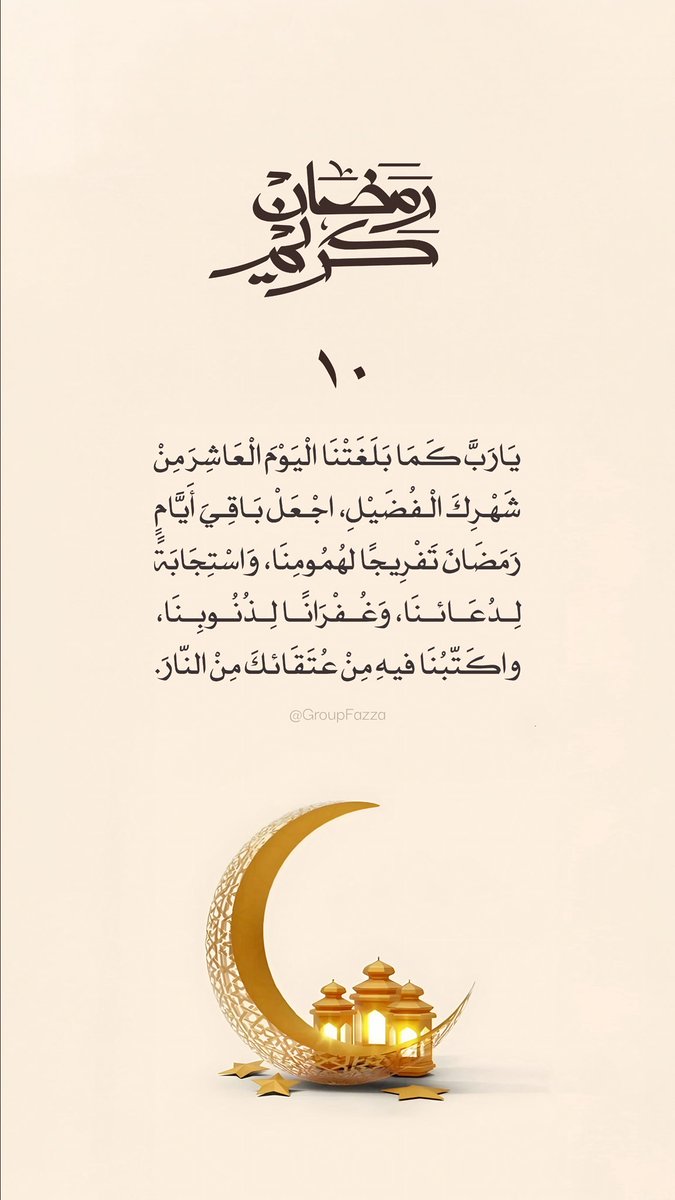 رمضان
كريم
١٠
يَارَبَّ كَمَا بَلَغَتْنَا الْيَوْمَ الْعَاشِرَ مِنْ
شَهْرِكَ الْفُضَيْلِ، اجْعَلْ بَاقِيَ أَيَّامٍ
رَمَضَانَ تَفْرِيجًا لهُمُومِنَا، وَاسْتِجَابَةً
لِدُعَائنَا، وَغُفْرَانًا لِذُنُوبِنَا،
واكَتّبُنَا فيهِ مِنْ عُتَقَائكَ مِنْ النّارَ.
@GroupFazza